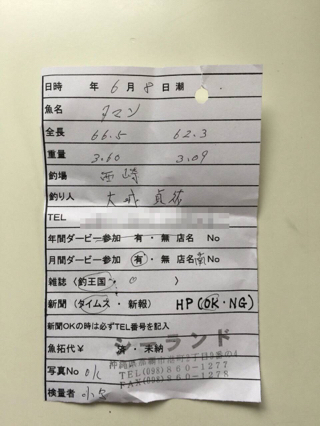 日時 年 6月 8日 潮
魚名 タマン
全長 66.5 62.3
重量 3.60 3.09
釣場 西崎
釣り人 大城 貞
TEL
年間ダービー参加 有・無 店名 No
月間ダービー参加 有・無 店名 南 No
雑誌(釣王国・ )
新聞(タイムス・新報) HP(OK・NG)
新聞OKの時は必ずTEL番号を記入
魚拓代¥ 済・未納
シーランド
写真No OK
TEL(098)860-1277
FAX(098)860-1278
検量者